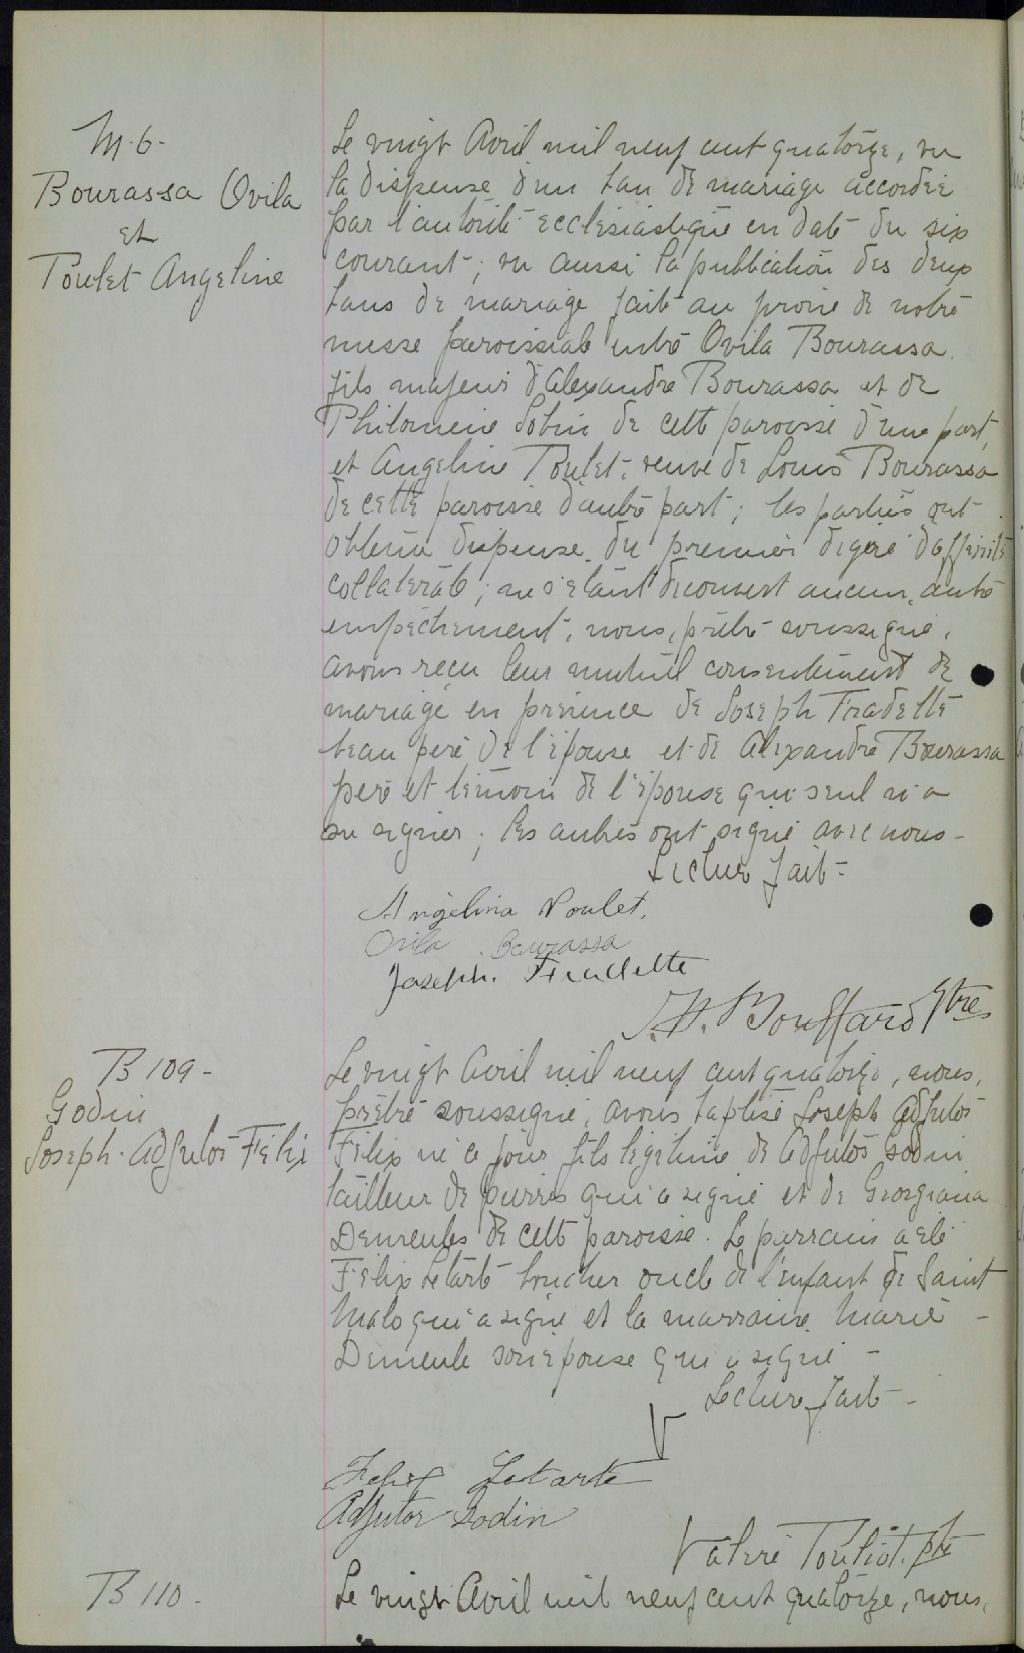 M. 6 -
Bourassa Ovila
et
Poulet Angeline
Le vingt Avril mil neuf cent quatorze, vu
la dispense d'un ban de mariage accordée
par l'autorité ecclésiastique en date du six
courant ; vu aussi la publication des deux
bans de mariage faite au prône de notre
messe paroissiale entre Ovila Bourassa
fils majeur d'Alexandre Bourassa et de
Philomène de cette paroisse d'une part,
et Angeline Poulet, veuve de Louis Bourassa
de cette paroisse d'autre part ; les parties ont
obtenu dispense du premier degré d'affinité
collatérale ; ne s'étant découvert aucun autre
empêchement, nous, prêtre soussigné,
avons reçu leur mutuel consentement de
mariage en présence de Joseph Fradette
beau père de l'épouse et de Alexandre Bourassa
père et témoin de l'épouse qui seul n'a
su signer ; les autres ont signé avec nous -
Lecture faite -
Angelina Poulet,
Ovila Bourassa
Joseph. Fradette
Bouffard Ptre
B 109 -
Godin
Joseph. Adjutor Félix
Le vingt Avril mil neuf cent quatorze, nous,
prêtre soussigné, avons baptisé Joseph Adjutor
Félix né ce jour fils légitime de Adjutor Godin
tailleur de pierres qui a signé et de Georgiana
Demeules de cette paroisse. Le parrain a été
Félix Letarte boucher oncle de l'enfant de Saint
Malo qui a signé et la marraine Marie -
Demeule son épouse qui a signé -
Lecture faite -
Felix Letarte
Adjutor Godin
Valère Pouliot. ptre
B 110 -
Le vingt Avril mil neuf cent quatorze, nous,